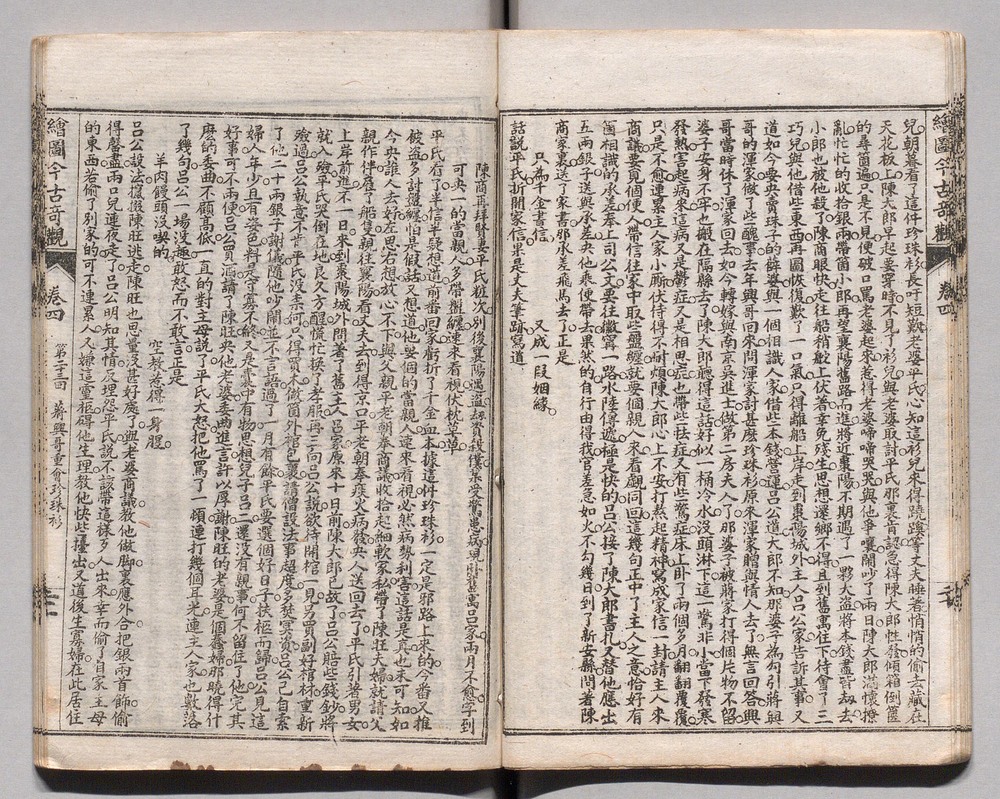 繪圖今古奇觀
卷四
兒朝暮看了這件珍珠衫長吁短歎老婆平氏心知這衫兒來得蹺蹊等丈夫睡着悄悄的偷去藏在
天花板上陳大郎早起要穿時不見了衫兒與老婆取討平氏那裏肯認急得陳大郎性發傾箱倒篋
的尋箇遍只是不見便破口罵老婆起來惹得老婆啼啼哭哭與他爭嚷鬧吵了兩日陳大郎滿懷撩
亂忙忙的收拾銀兩帶箇小郎再望襄陽舊路而進將近棗陽不期遇了一夥大盜將本錢盡皆刼去
小郎也被他殺了陳商眼快走往船稍舵上伏著幸免殘生思想還鄉不得且到舊寓住下待會了三
巧兒與他借些東西再圖恢復歎了一口氣只得離船上岸走到棗陽城外主人呂公家告訴其事又
道如今要央賣珠子的薛婆與一個相識人家借些本錢營運呂公道大郎不知那婆子為勾引蔣興
哥的渾家做了些醜事去年興哥回來問渾家討甚麽珍珠衫原來渾家贈與情人去了無言回答興
哥當時休了渾家回去如今轉嫁與南京吳進士做第二房夫人了那婆子被蔣家打得個片物不留
婆子安身不牢也搬在隔縣去了陳大郎聽得這話好似一桶冷水沒頭淋下這一驚非小當下發寒
發熱害起病來這病又是鬱症又是相思症也帶些怯症又有些驚症床上卧了兩個多月翻翻覆覆
只是不愈連累主人家小廝伏侍得不耐煩陳大郎心上不安打熬起精神寫成家信一封請主人來
商議要覓個便人帶信往家中取些盤纏就要個親人來看覷同回這幾句正中了主人之意恰好有
個相識的承差奉上司公文要往徽寧一路水陸傳遞極是快的呂公接了陳大郎書札又替他應出
五兩銀子送與承差央他乘便帶去果然的自行由得我官差急如火不勾幾日到了新安縣問著陳
商家裏送了家書那承差飛馬去了正是
只為千金書信 又成一段姻緣
話說平氏拆開家信果是丈夫筆跡寫道
陳商再拜賢妻平氏粧次別後襄陽遇盜刼資殺僕某受驚患病現臥舊寓呂家兩月不愈字到
可央一的當親人多帶盤纏速來看視伏枕草草
平氏看了半信半疑想道前番回家虧折了千金血本據這件珍珠衫一定是邪路上來的今番又推
被盜多討盤纏怕是假話又想道他要個的當親人速來看視必然病勢利害這話是真也未可知如
今央誰人去好左思右想放心不下與父親平老朝奉商議收拾起細軟家私帶了陳旺夫婦就請父
親作伴雇了船隻親往襄陽看丈夫去到得京口平老朝奉痰火病發央人送回去了平氏引著男女
上岸前進不一日來到棗陽城外問著了舊主人呂家原來十日前陳大郎已故了呂公賠些錢鈔將
就入殮平氏哭倒在地良久方醒慌忙換了孝服再三向呂公說欲待開棺一見另買副好棺材重新
殮過呂公執意不肯平氏沒奈何只得買木做箇外棺包裹請僧設法事超度多焚冥資呂公已自索
了他二十兩銀子謝儀隨他吵鬧並不言語過了一月有餘平氏要選個好日子扶柩而歸呂公見這
婦人年少且有姿色料是守寡不終又是囊中有物思想兒子呂二還沒有親事何不留住了他完其
好事可不兩便呂公買酒請了陳旺央他老婆委曲進言許以厚謝陳旺的老婆是個蠢婦那曉得什
麽的委曲不顧高低一直的對主母說了平氏大怒把他罵了一頓連打幾個耳光連主人家也數落
了幾句呂公一場沒趣敢怒而不敢言正是
羊肉饅頭沒喫的 空教惹得一身腥
呂公設法攛掇陳旺逃走陳旺也思量沒甚好處了與老婆商議教他做脚裏應外合把銀兩首飾偷
得罄盡兩口兒連夜走了呂公明知其情反埋怨平氏說不該帶這樣歹人出來幸而偷了自家主母
的東西若偷了別家的可不連累人又嫌這靈柩碍他生理教他快些擡出又道後生寡婦在此居住
繪圖今古奇觀
卷四
第二十三回 蔣興哥重會珍珠衫